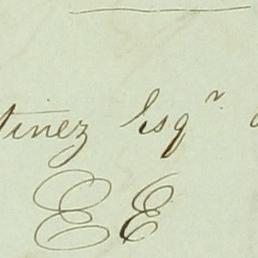 tinez Esqr.
E E